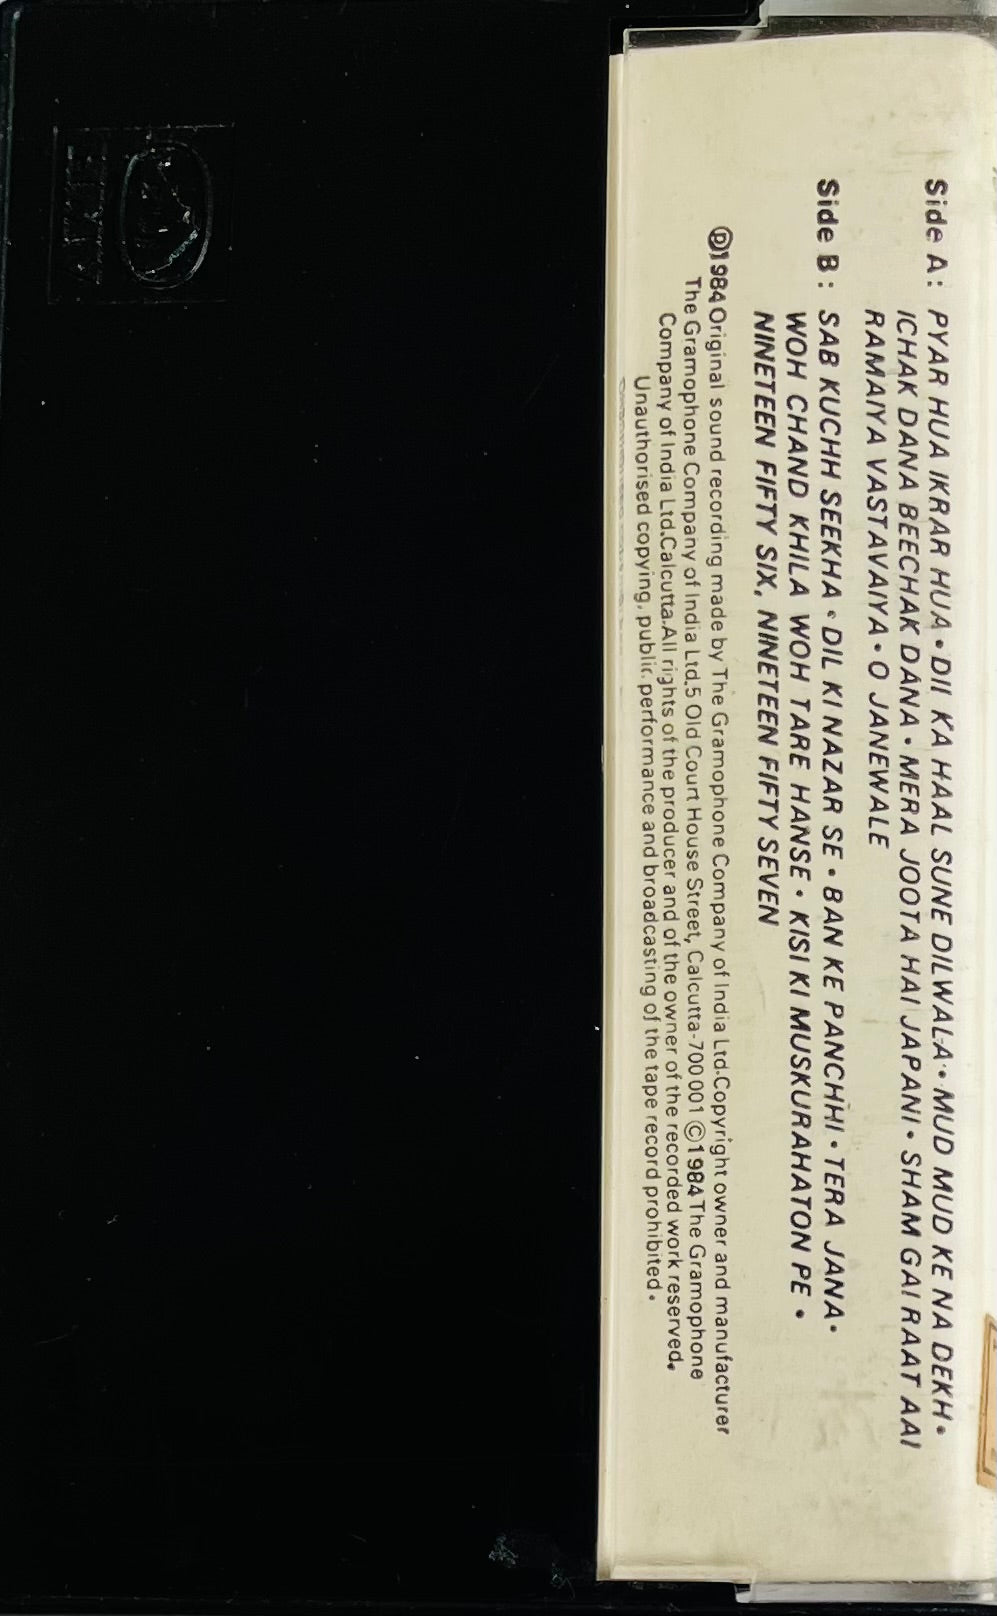 Side A: PYAR HUA IKRAR HUA • DIL KA HAAL SUNE DILWALA • MUD MUD KE NA DEKH •
ICHAK DANA BEECHAK DANA • MERA JOOTA HAI JAPANI • SHAM GAI RAAT AAI
RAMAIYA VASTAVAIYA • O JANEWALE
Side B: SAB KUCHH SEEKHA • DIL KI NAZAR SE • BAN KE PANCHHI • TERA JANA •
WOH CHAND KHILA WOH TARE HANSE • KISI KI MUSKURAHATON PE •
NINETEEN FIFTY SIX, NINETEEN FIFTY SEVEN
Ⓟ1984 Original sound recording made by The Gramophone Company of India Ltd. Copyright owner and manufacturer
The Gramophone Company of India Ltd. 5 Old Court House Street, Calcutta-700 001 © 1984 The Gramophone
Company of India Ltd. Calcutta. All rights of the producer and of the owner of the recorded work reserved.
Unauthorised copying, public performance and broadcasting of the tape record prohibited.